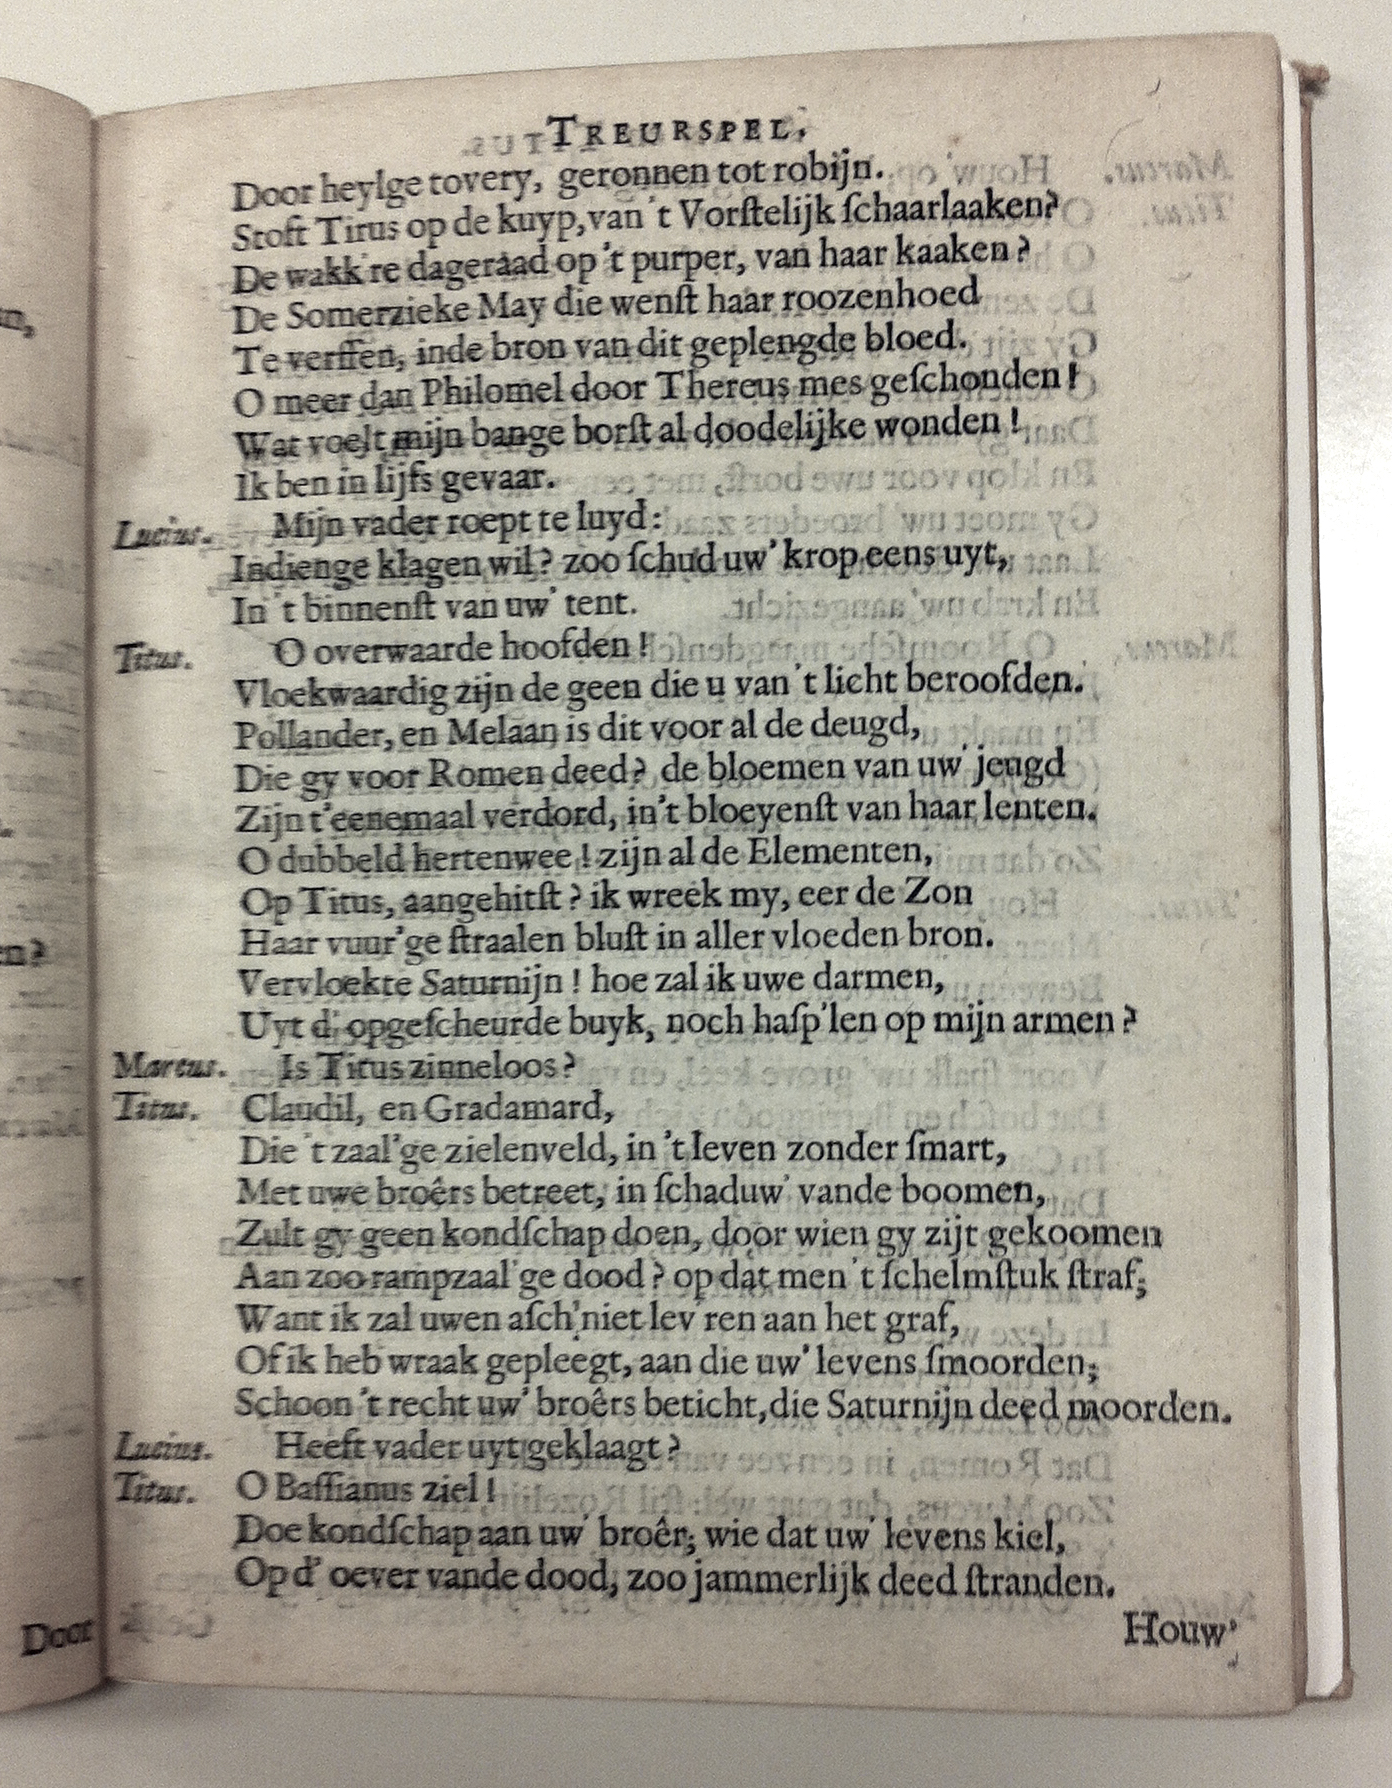 TREURSPEL,
Door heylge tovery, geronnen tot robijn.
Stoft Titus op de kuyp, van 't Vorſtelijk ſchaarlaaken?
De wakk're dageraad op 't purper, van haar kaaken?
De Somerzieke May die wenſt haar roozenhoed
Te verffen, inde bron van dit geplengde bloed.
O meer dan Philomel door Thereus mes geſchonden!
Wat voelt mijn bange borſt al doodelijke wonden!
Ik ben in lijfs gevaar.
Lucius. Mijn vader roept te luyd:
Indienge klagen wil? zoo ſchud uw' krop eens uyt,
In 't binnenſt van uw' tent.
Titus. O overwaarde hoofden!
Vloekwaardig zijn de geen die u van 't licht beroofden.
Pollander, en Melaan is dit voor al de deugd,
Die gy voor Romen deed? de bloemen van uw' jeugd
Zijn t'eenemaal verdord, in't bloeyenſt van haar lenten.
O dubbeld hertenwee! zijn al de Elementen,
Op Titus, aangehitſt? ik wreek my, eer de Zon
Haar vuur'ge ſtraalen bluſt in aller vloeden bron.
Vervloekte Saturnijn! hoe zal ik uwe darmen,
Uyt d' opgeſcheurde buyk, noch haſp'len op mijn armen?
Marcus. Is Titus zinneloos?
Titus. Claudil, en Gradamard,
Die 't zaal'ge zielenveld, in 't leven zonder ſmart,
Met uwe broêrs betreet, in ſchaduw' vande boomen,
Zult gy geen kondſchap doen, door wien gy zijt gekoomen
Aan zoo rampzaal'ge dood? op dat men 't ſchelmſtuk ſtraf;
Want ik zal uwen aſch' niet lev'ren aan het graf,
Of ik heb wraak gepleegt, aan die uw' levens ſmoorden;
Schoon 't recht uw' broêrs beticht, die Saturnijn deed moorden.
Lucius. Heeft vader uyt geklaagt?
Titus. O Baſſianus ziel!
Doe kondſchap aan uw' broêr; wie dat uw' levens kiel,
Op d' oever vande dood, zoo jammerlijk deed ſtranden.
Door
Houw'